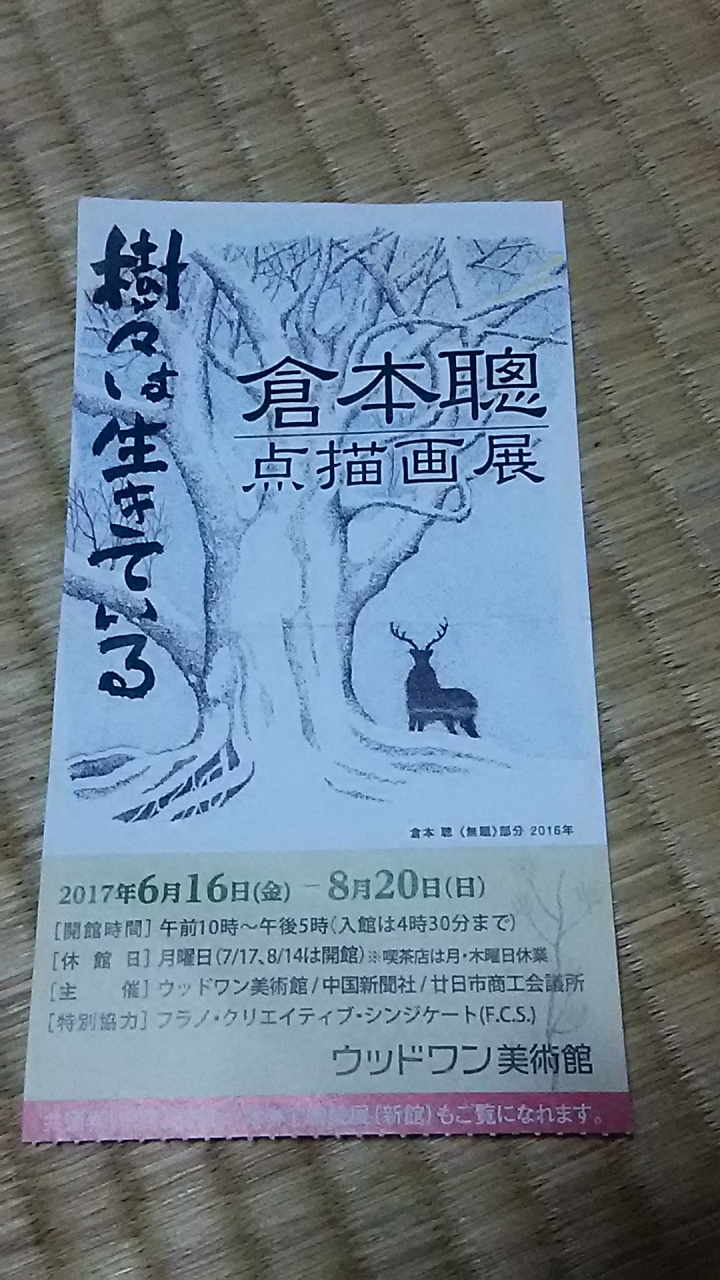 樹々は生きている
倉本聰
点描画展
倉本 聰 《無題》部分 2016年
2017年6月16日(金) ― 8月20日(日)
[開館時間] 午前10時〜午後5時(入館は4時30分まで)
[休 館 日] 月曜日(7/17、8/14は開館) ※喫茶店は月・木曜日休業
[主 催] ウッドワン美術館/中国新聞社/廿日市商工会議所
[特別協力] フラノ・クリエイティブ・シンジケート(F.C.S.)
ウッドワン美術館
(新館)もご覧になれます。